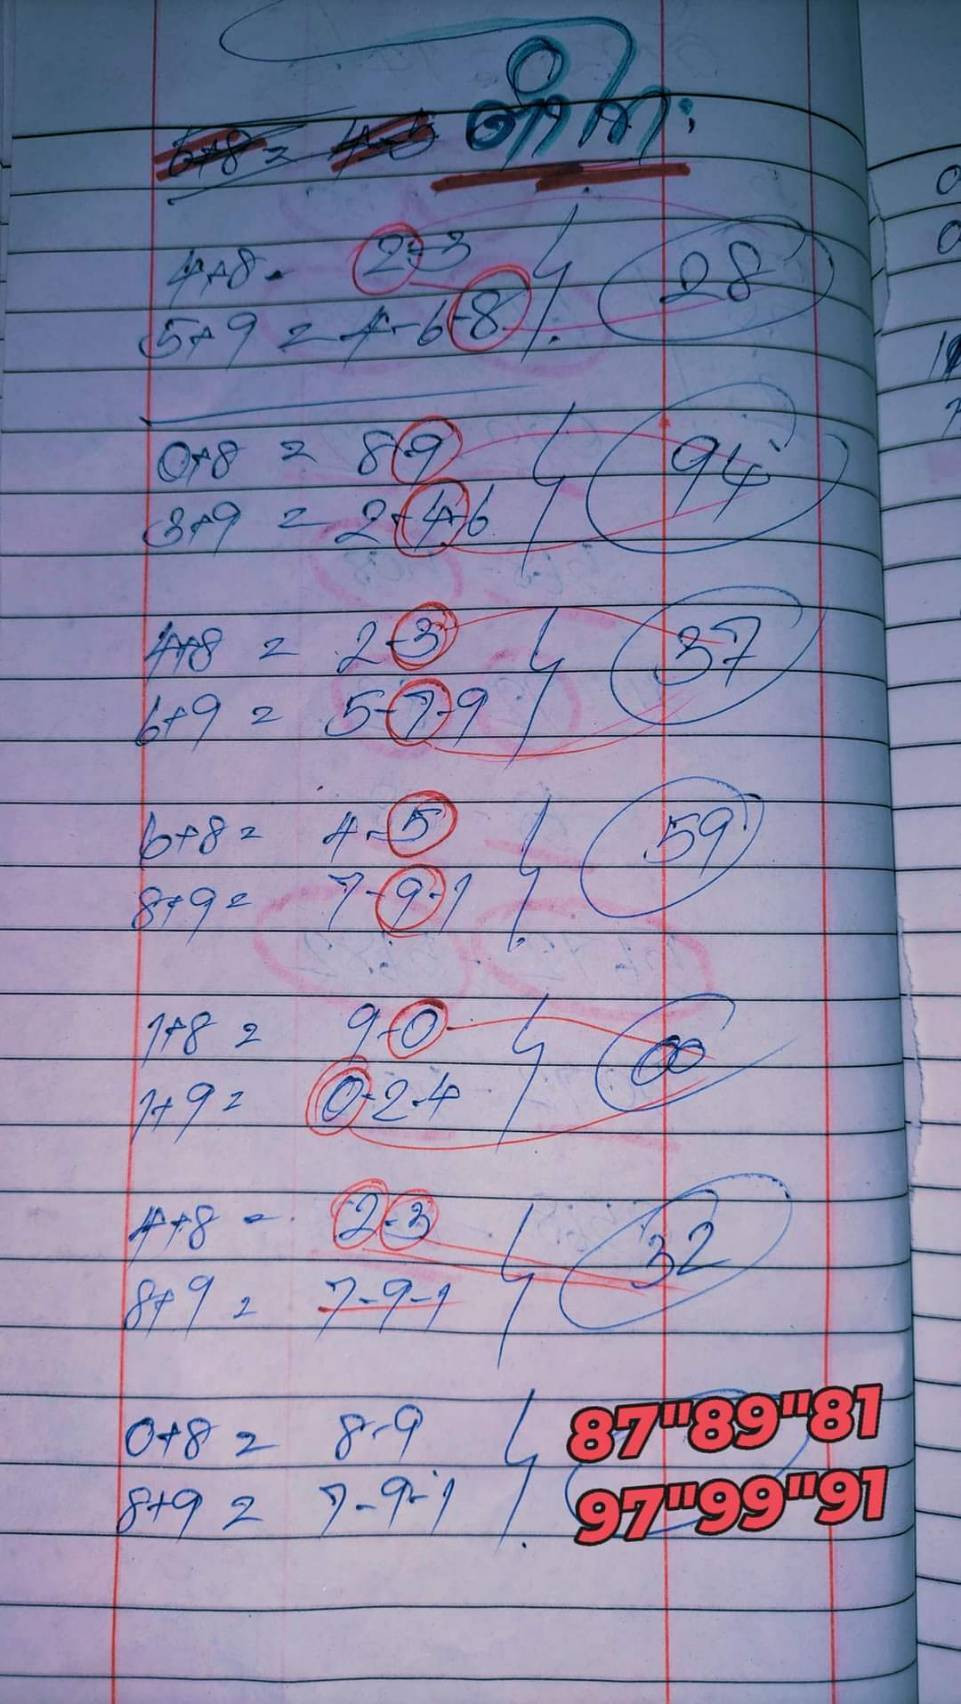 6+8= 4-5
4+8- 2-3 28
5+9 = 4-6-8
0+8 = 8-9 94
3+9 = 2-4-6
4+8 = 2-3 37
6+9 = 5-7-9
6+8= 4-5 59
8+9= 7-9-1
1+8= 9-0 00
1+9= 0-2-4
4+8= 2-3 32
8+9= 7-9-1
0+8= 8-9 87"89"81
8+9= 7-9-1 97"99"91